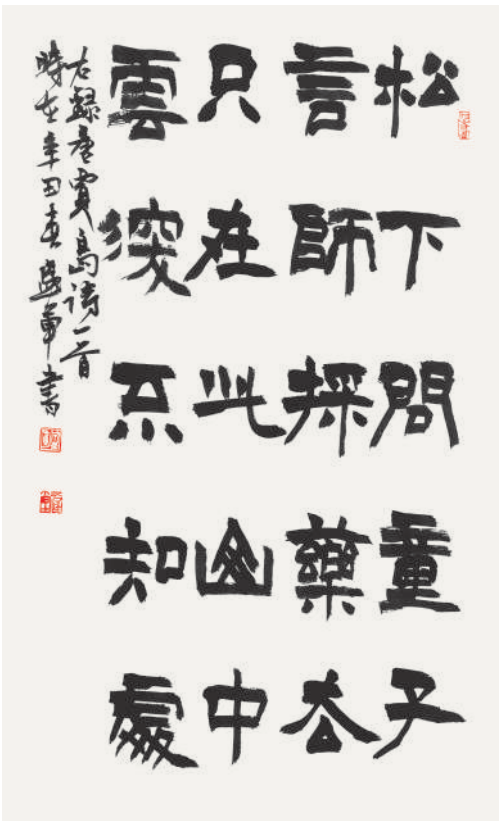 松下問童子
言師採藥去
只在此山中
雲深不知處
右録唐賈島詩一首
時在辛丑春盛軍書